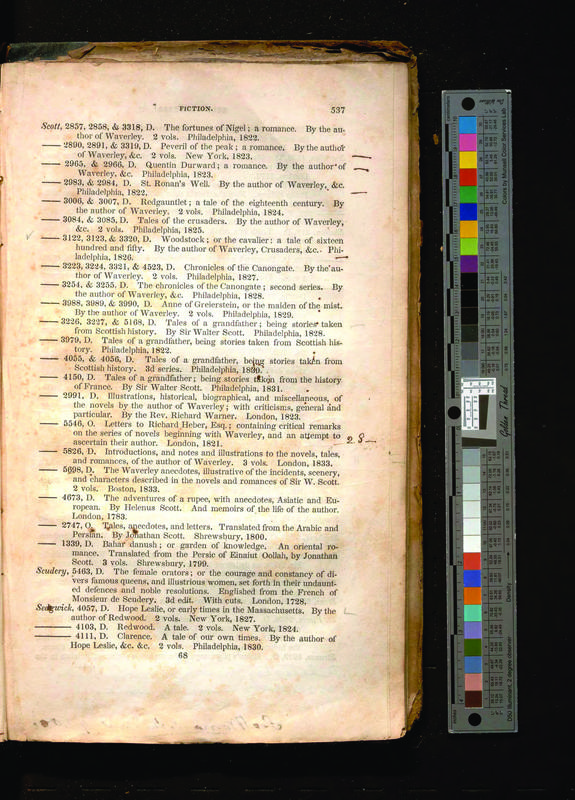 FICTION. 537
Scott, 2857, 2858, & 3318, D. The fortunes of Nigel; a romance. By the au-
thor of Waverley. 2 vols. Philadelphia, 1822.
—— 2890, 2891, & 3319, D. Peveril of the peak; a romance. By the author
of Waverley, &c. 2 vols. New York, 1823.
—— 2965, & 2966, D. Quentin Durward; a romance. By the author of
Waverley, &c. Philadelphia, 1823.
—— 2983, & 2984, D. St. Ronan's Well. By the author of Waverley, &c.
Philadelphia, 1822.
—— 3006, & 3007, D. Redgauntlet; a tale of the eighteenth century. By
the author of Waverley. 2 vols. Philadelphia, 1824.
—— 3084, & 3085, D. Tales of the crusaders. By the author of Waverley,
&c. 2 vols. Philadelphia, 1825.
—— 3122, 3123, & 3320, D. Woodstock; or the cavalier: a tale of sixteen
hundred and fifty. By the author of Waverley, Crusaders, &c. Phi-
ladelphia, 1826.
—— 3223, 3224, 3321, & 4523, D. Chronicles of the Canongate. By the au-
thor of Waverley. 2 vols. Philadelphia, 1827.
—— 3254, & 3255. D. The chronicles of the Canongate; second series. By
the author of Waverley, &c. Philadelphia, 1828.
—— 3988, 3989, & 3990, D. Anne of Greierstein, or the maiden of the mist.
By the author of Waverley. 2 vols. Philadelphia, 1829.
—— 3226, 3227, & 5168, D. Tales of a grandfather; being stories taken
from Scottish history. By Sir Walter Scott. Philadelphia, 1828.
—— 3979, D. Tales of a grandfather, being stories taken from Scottish his-
tory. Philadelphia, 1822.
—— 4055, & 4056, D. Tales of a grandfather, being stories taken from
Scottish history. 3d series. Philadelphia,
—— 4150, D. Tales of a grandfather; being stories taken from the history
of France. By Sir Walter Scott. Philadelphia, 1831.
—— 2991, D. Illustrations, historical, biographical, and miscellaneous, of
the novels by the author of Waverley; with criticisms, general and
particular. By the Rev. Richard Warner. London, 1823.
—— 5546, O. Letters to Richard Heber, Esq.; containing critical remarks
on the series of novels beginning with Waverley, and an attempt to 28—
ascertain their author. London, 1821.
—— 5826, D. Introductions, and notes and illustrations to the novels, tales,
and romances, of the author of Waverley. 3 vols. London, 1833.
—— 5698, D. The Waverley anecdotes, illustrative of the incidents, scenery,
and characters described in the novels and romances of Sir W. Scott.
2 vols. Boston, 1833.
—— 4673, D. The adventures of a rupee, with anecdotes, Asiatic and Eu-
ropean. By Helenus Scott. And memoirs of the life of the author.
London, 1783.
—— 2747, O. Tales, anecdotes, and letters. Translated from the Arabic and
Persian. By Jonathan Scott. Shrewsbury, 1800.
—— 1339, D. Bahar danush; or garden of knowledge. An oriental ro-
mance. Translated from the Persic of Einaiut Oollah, by Jonathan
Scott. 3 vols. Shrewsbury, 1799.
Scudery, 5463, D. The female orators; or the courage and constancy of di-
vers famous queens, and illustrious women, set forth in their undaunt-
ed defences and noble resolutions. Englished from the French of
Monsieur de Scudery. 3d edit. With cuts. London, 1728.
Sedgwick, 4057, D. Hope Leslie, or early times in the Massachusetts. By the
author of Redwood. 2 vols. New York, 1827.
—— 4103, D. Redwood. A tale. 2 vols. New York, 1824.
—— 4111, D. Clarence. A tale of our own times. By the author of
Hope Leslie, &c. &c. 2 vols. Philadelphia, 1830.
68
Golden Thread
Density